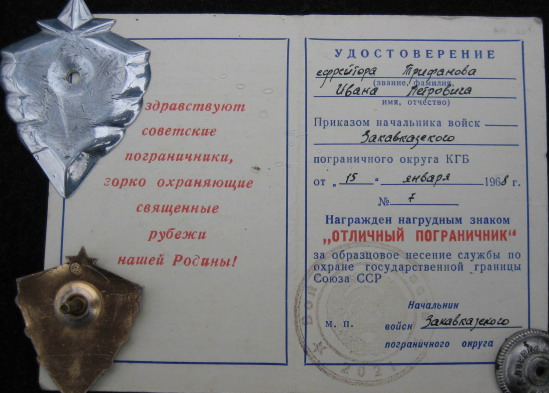 здравствуют
советские
пограничники,
зорко охраняющие
священные
рубежи
нашей Родины!
УДОСТОВЕРЕНИЕ
ефрейтора Трифанова
(звание, фамилия,
Ивана Петровича
имя, отчество)
Приказом начальника войск
Закавказского
пограничного округа КГБ
от „15 " января 1968 г.
№ 7
Награжден нагрудным знаком
„ОТЛИЧНЫЙ ПОГРАНИЧНИК"
за образцовое несение службы по
охране государственной границы
Союза ССР
Начальник
м. п. войск Закавказского
пограничного округа
2021